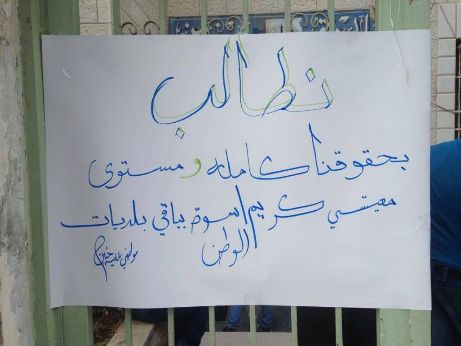 نطالب
بحقوقنا كامله و مستوى
معيشي كريم اسوة بباقي بلديات
الوطن